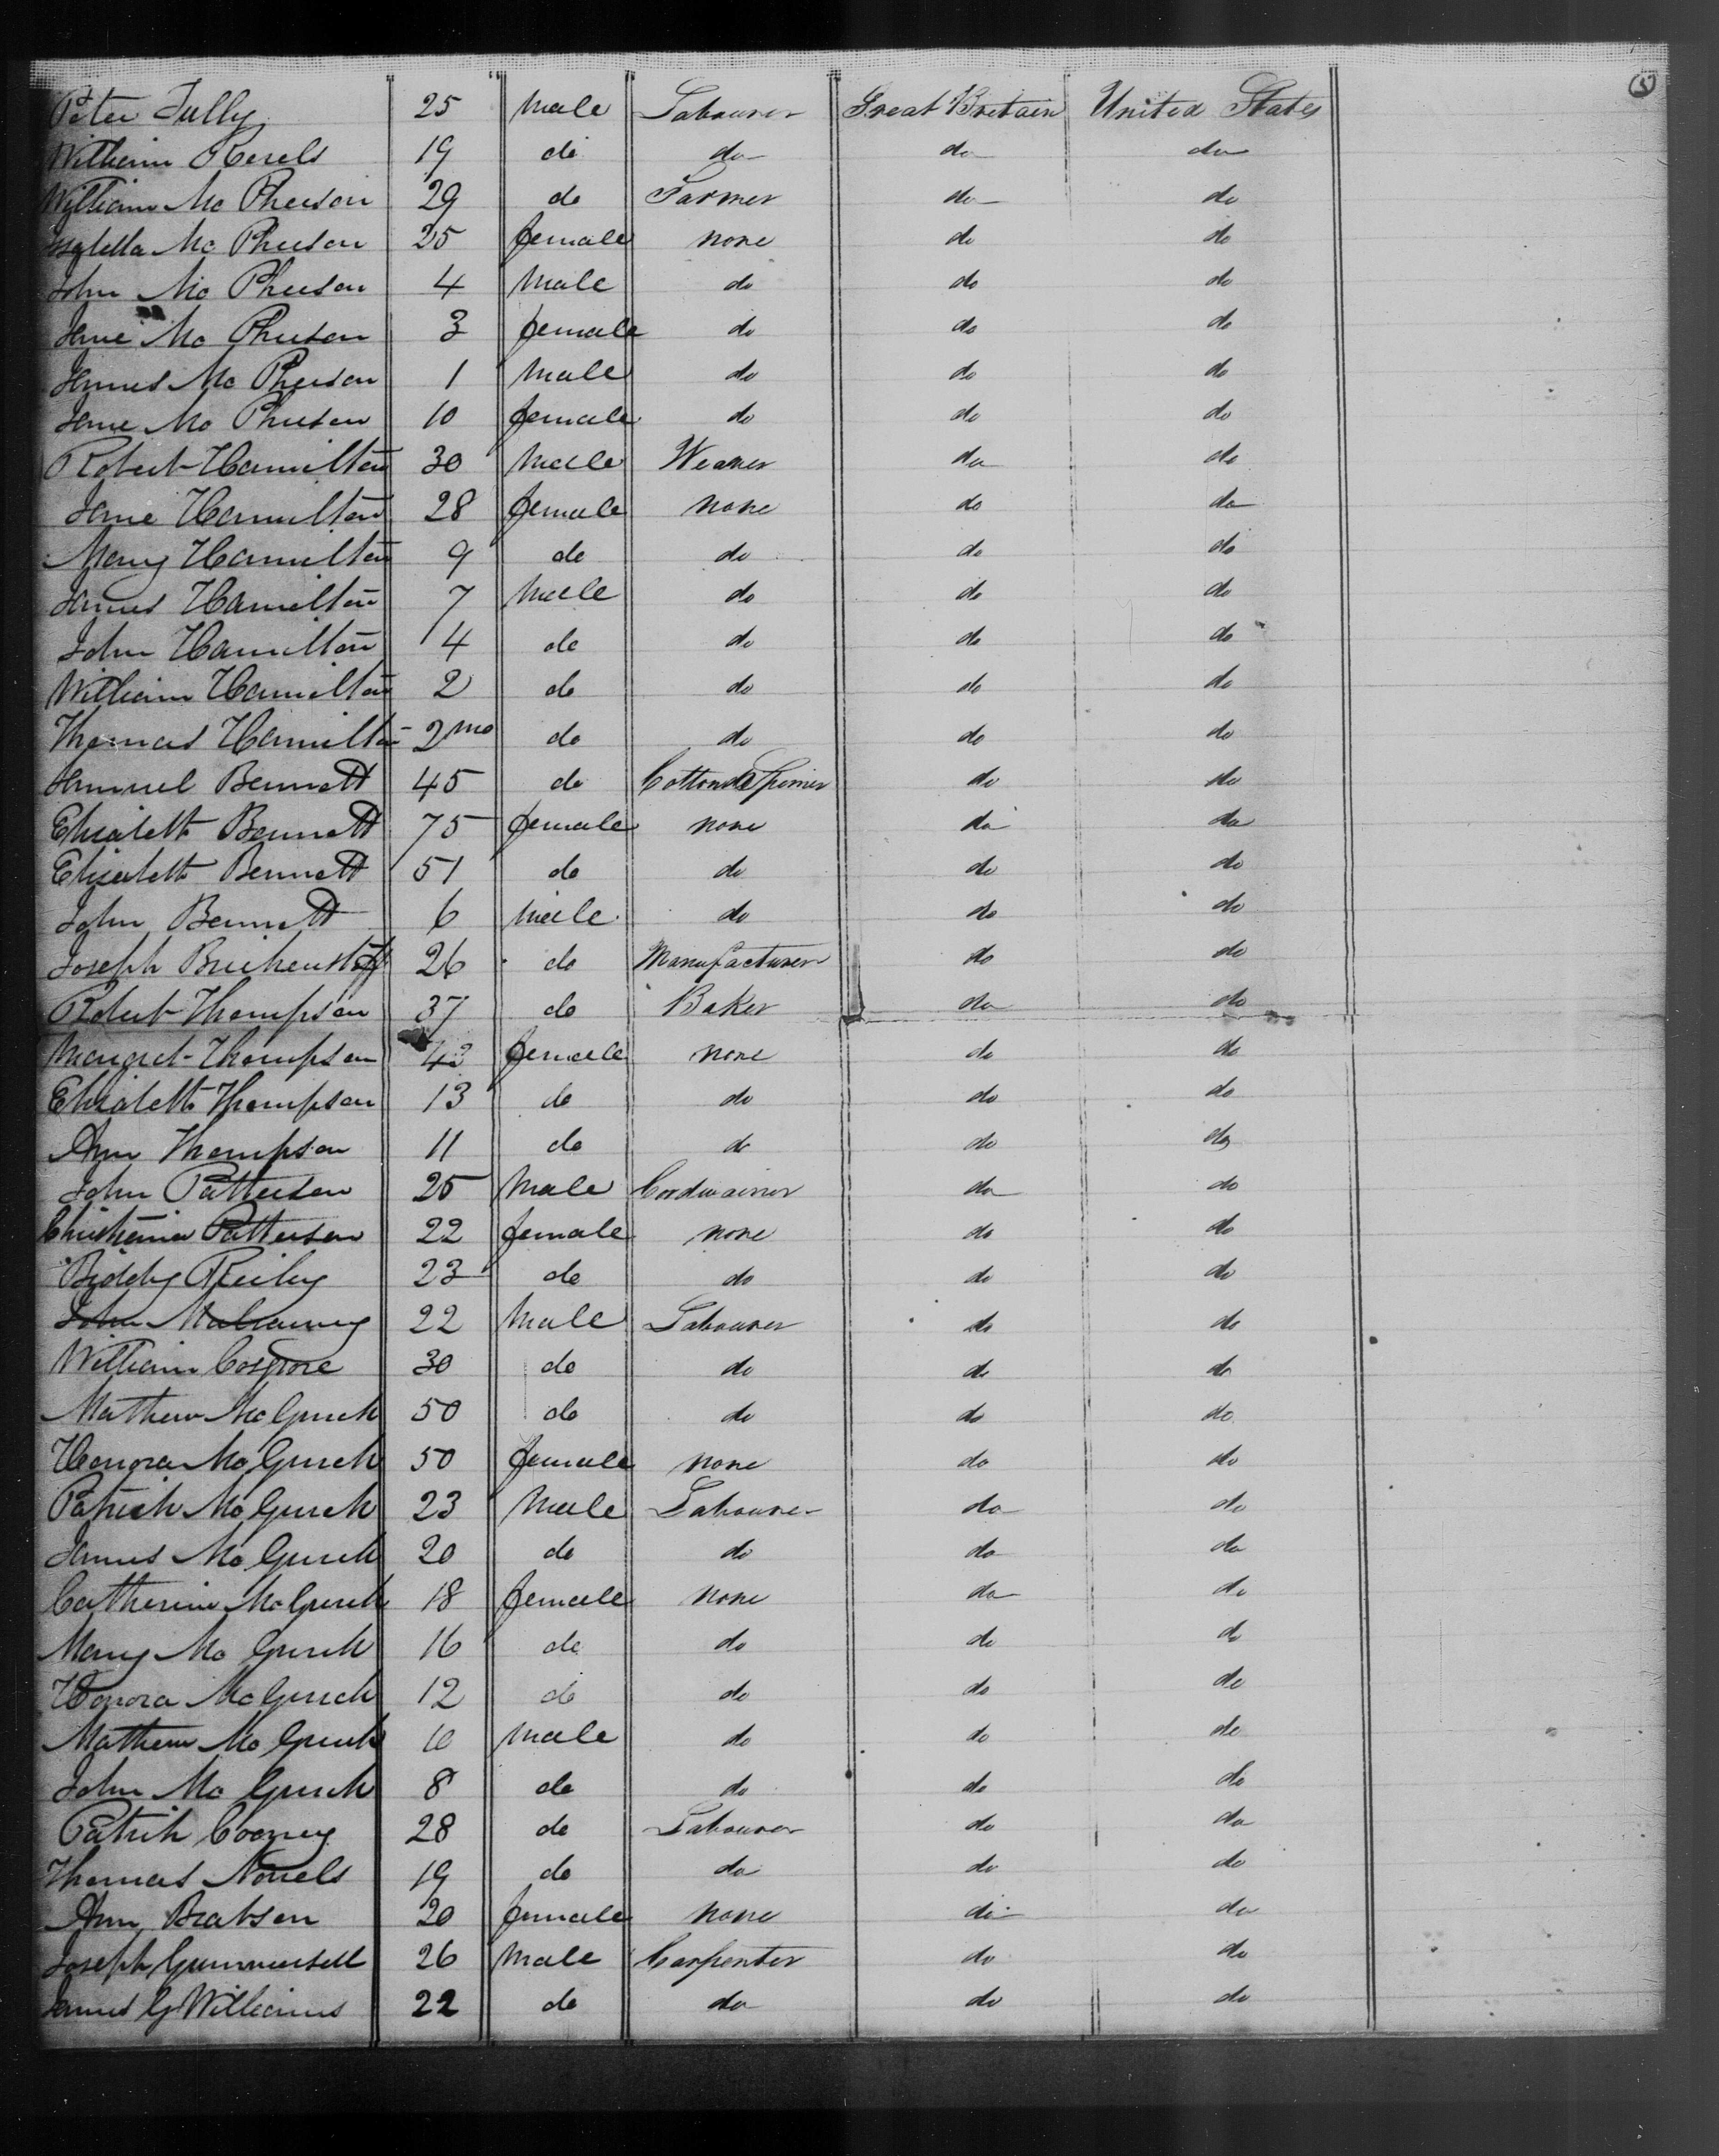 5
Peter Tully 25 Male Labourer Great Britain United States
William 19 do do do do
William Mc Pherson 29 do Farmer do do
Isabella Mc Pherson 25 female none do do
John Mc Pherson 4 Male do do do
Jane Mc Pherson 3 female do do do
James Mc Pherson 1 Male do do do
Jane Mc Pherson 10 female do do do
Robert Hamilton 30 Male Weaver do do
Jane Hamilton 28 female none do do
Mary Hamilton 9 do do do do
James Hamilton 7 Male do do do
John Hamilton 4 do do do do
William Hamilton 2 do do do do
Thomas Hamilton 2 mo do do do do
Samuel Bennett 45 do Cotton Spinner do do
Elizabeth Bennett 75 female none do do
Elizabeth Bennett 51 do do do do
John Bennett 6 Male do do do
Joseph 26 do Manufacturer do do
Robert Thompson 37 do Baker do do
Margret Thompson 43 female none do do
Elizabeth Thompson 13 do do do do
Ann Thompson 11 do do do do
John Patterson 25 Male Cordwainer do do
Christiana Patterson 22 female none do do
Biddy Reiley 23 do do do do
John 22 Male Labourer do do
William Cosgrove 30 do do do do
Mathew Mc Gurck 50 do do do do
Honora Mc Gurck 50 female none do do
Patrick Mc Gurck 23 Male Labourer do do
James Mc Gurck 20 do do do do
Catherine Mc Gurck 18 female none do do
Mary Mc Gurck 16 do do do do
Honora Mc Gurck 12 do do do do
Mathew Mc Gurck 10 Male do do do
John Mc Gurck 8 do do do do
Patrik Cooney 28 do Labourer do do
Thomas Norrels 19 do do do do
Ann Brabson 20 female none do do
Joseph Gummersell 26 Male Carpenter do do
James G Williams 22 do do do do